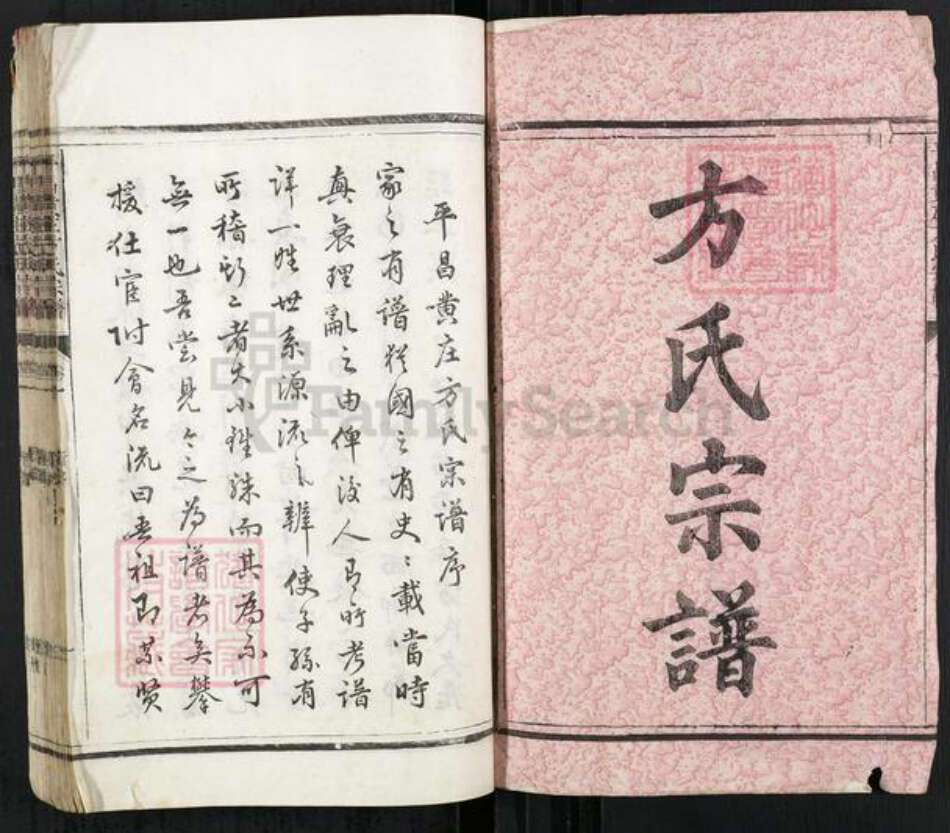 方氏宗譜
平昌黄庄方氏宗譜序
家之有譜猶國之有史〻載當時
真衰理亂之由俾後人有所考譜
詳一姓世系源流之辨使子孫有
所稽斯二者大小雖殊而其為不可
無一也吾嘗見今之為譜者矣攀
援仕宦附會名流曰吾祖即某賢
FamilySearch